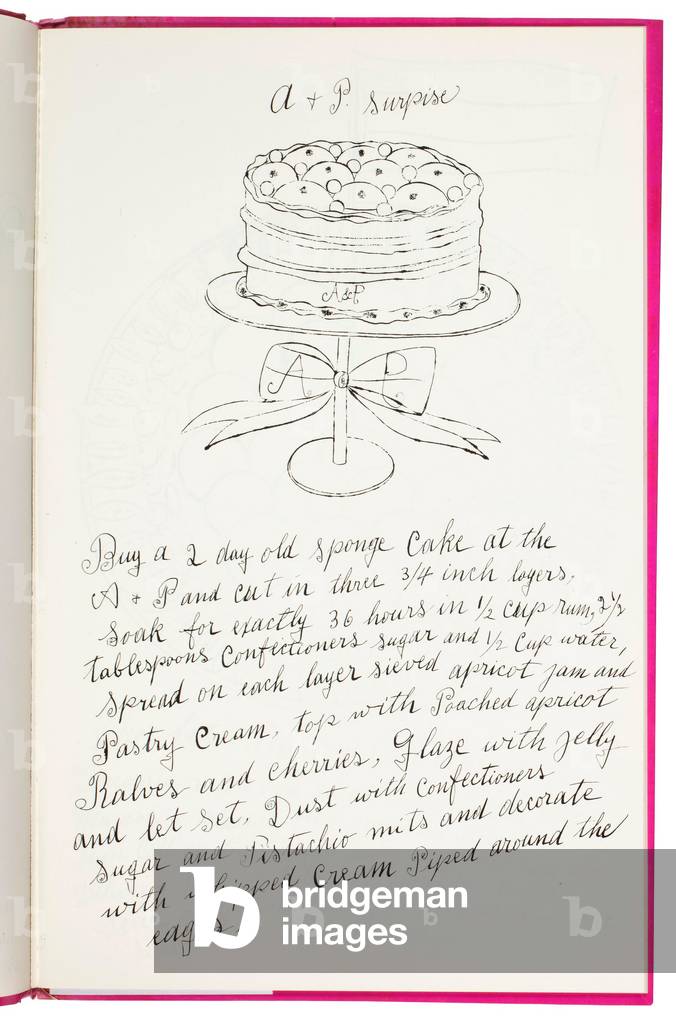 A + P. surpise
A&P
A P
Buy a 2 day old sponge cake at the
A + P and cut in three 3/4 inch layers,
soak for exactly 36 hours in 1/2 cup rum, 2 1/2
tablespoons Confectioners sugar and 1/2 cup water,
spread on each layer sieved apricot jam and
Pastry Cream, top with Poached apricot
Halves and cherries, Glaze with jelly
and let set, Dust with confectioners
sugar and Pistachio nuts and decorate
with whipped cream Piped around the
edges
bridgeman
images